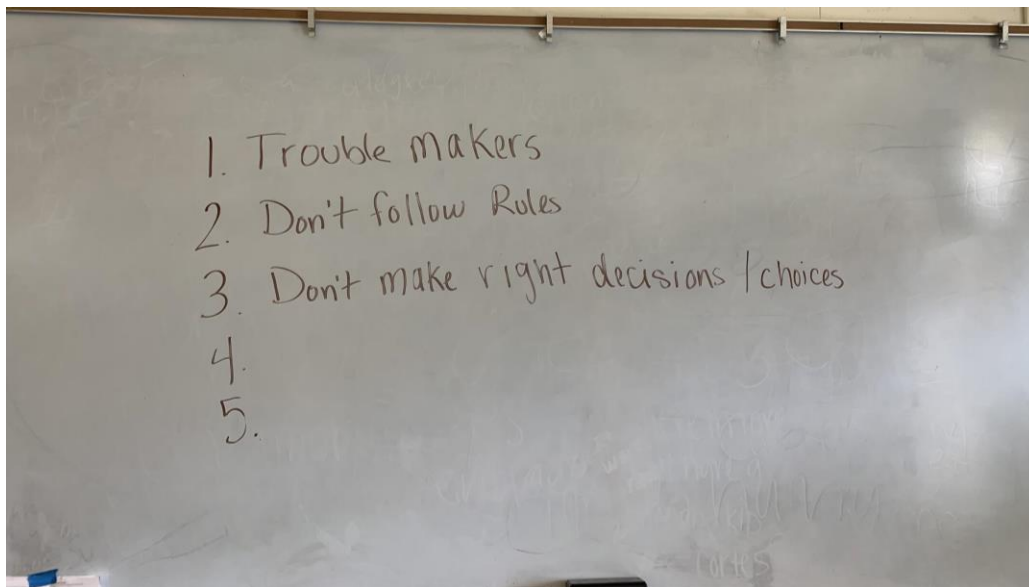 1. Trouble makers
2. Don't follow Rules
3. Don't make right decisions / choices
4.
5.